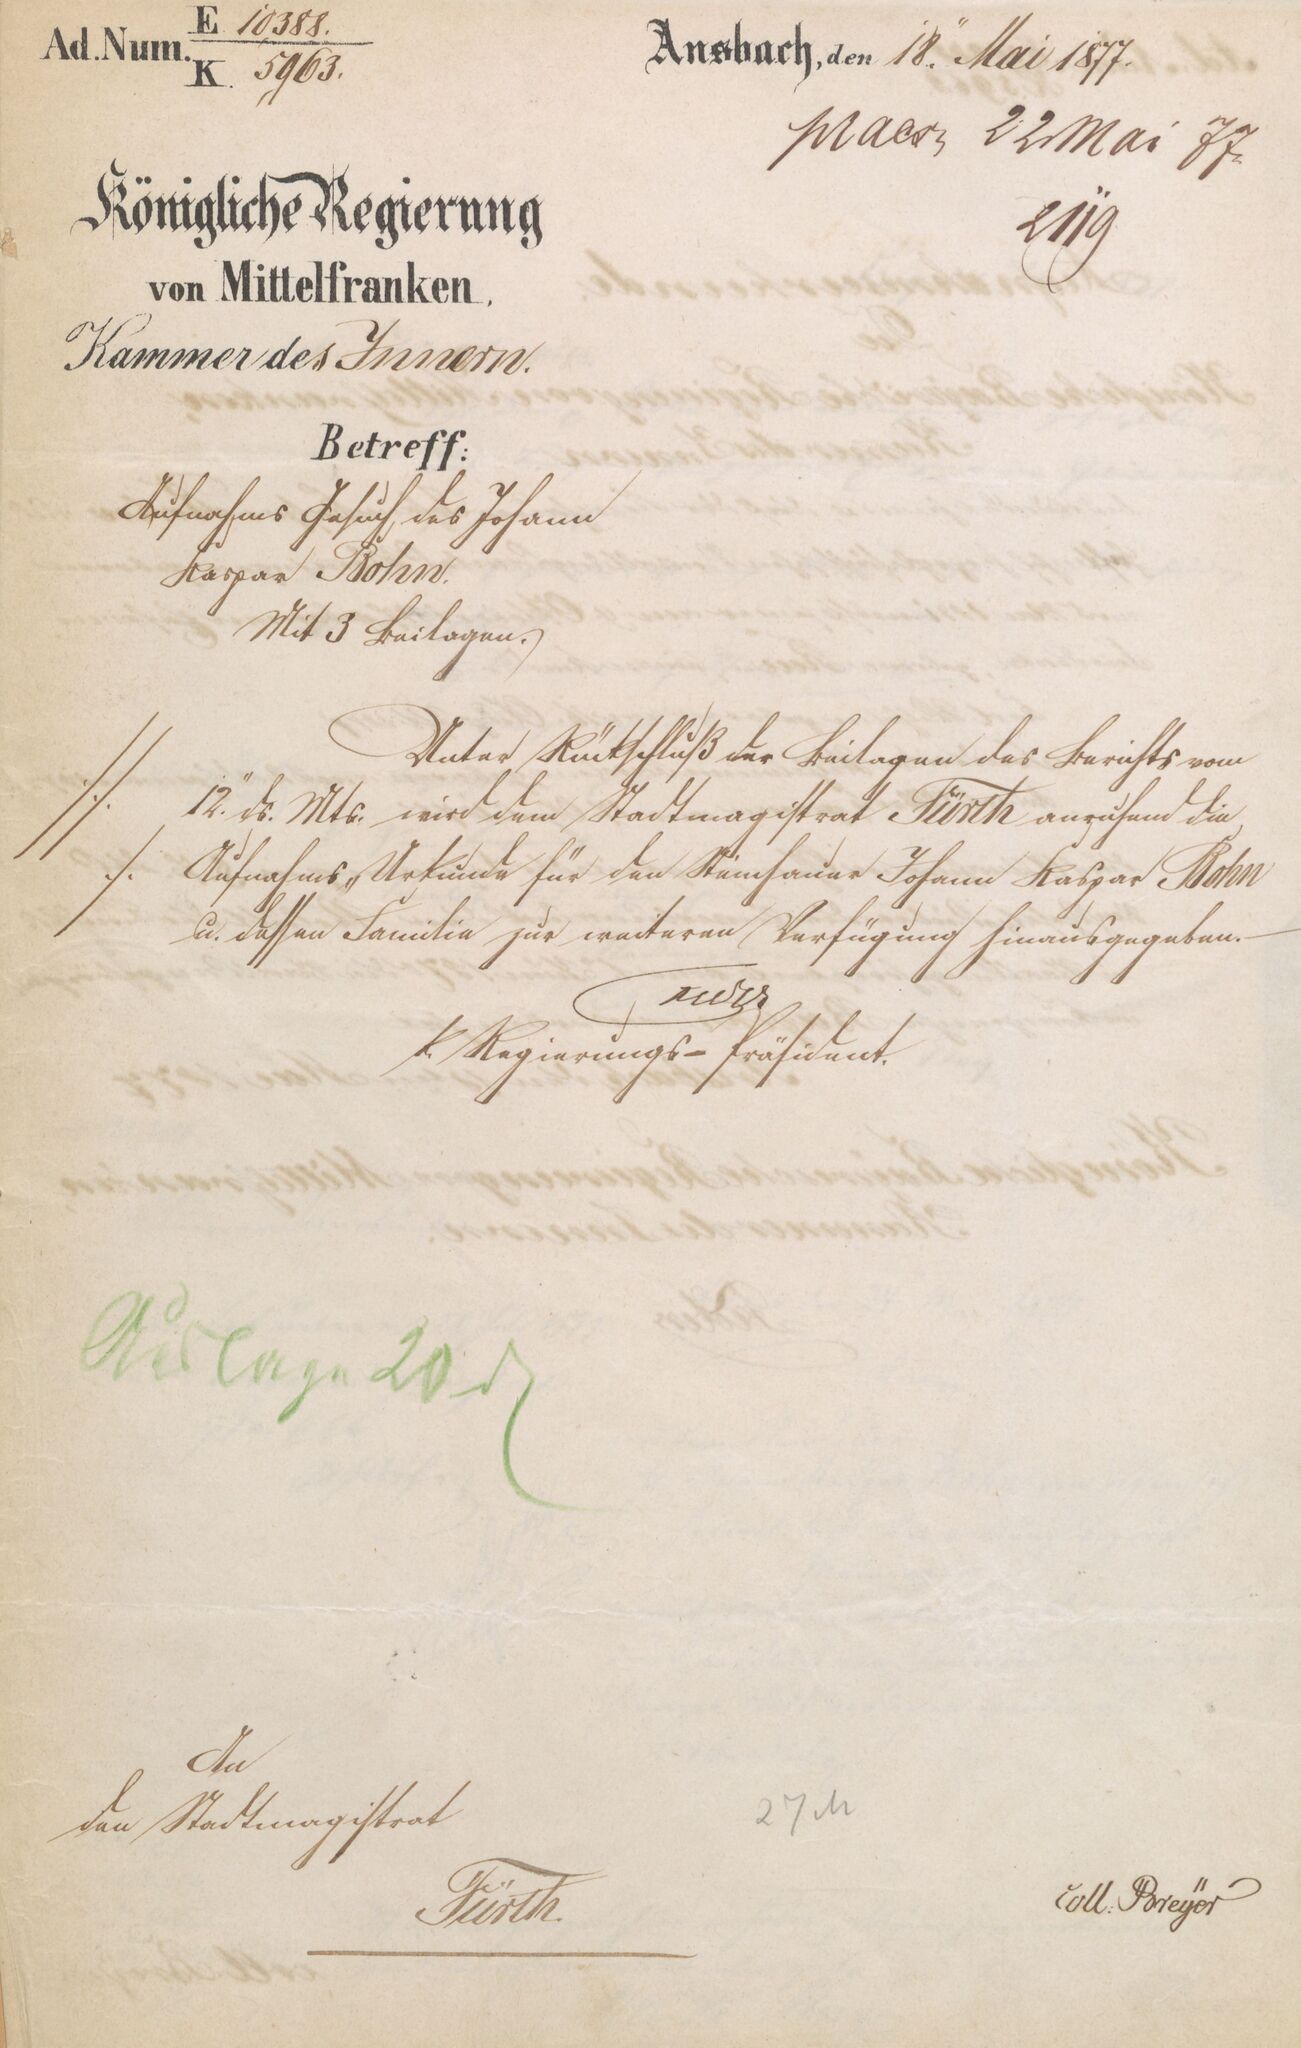 Ad. Num. E 10388.
K. 5963.
Ansbach, den 18." Mai 1877.
praes. 22 Mai 77.
2119
Königliche Regierung
von Mittelfranken,
Kammer des Innern.
Betreff:
Aufnahms Gesuch des Johann
Kaspar Bohn.
Mit 3 Beilagen.
Unter Rückschluß der Beilagen des Berichts vom
12." ds. Mts. wird dem Stadtmagistrat Fürth anruhend die
Aufnahms-Urkunde für den Steinhauer Johann Kaspar Bohn
u. dessen Familie zur weiteren Verfügung hinausgegeben.
k. Regierungs-Präsident.
Auslage 20 ₰
An
den Stadtmagistrat
Fürth.
27 M
coll. Breyer